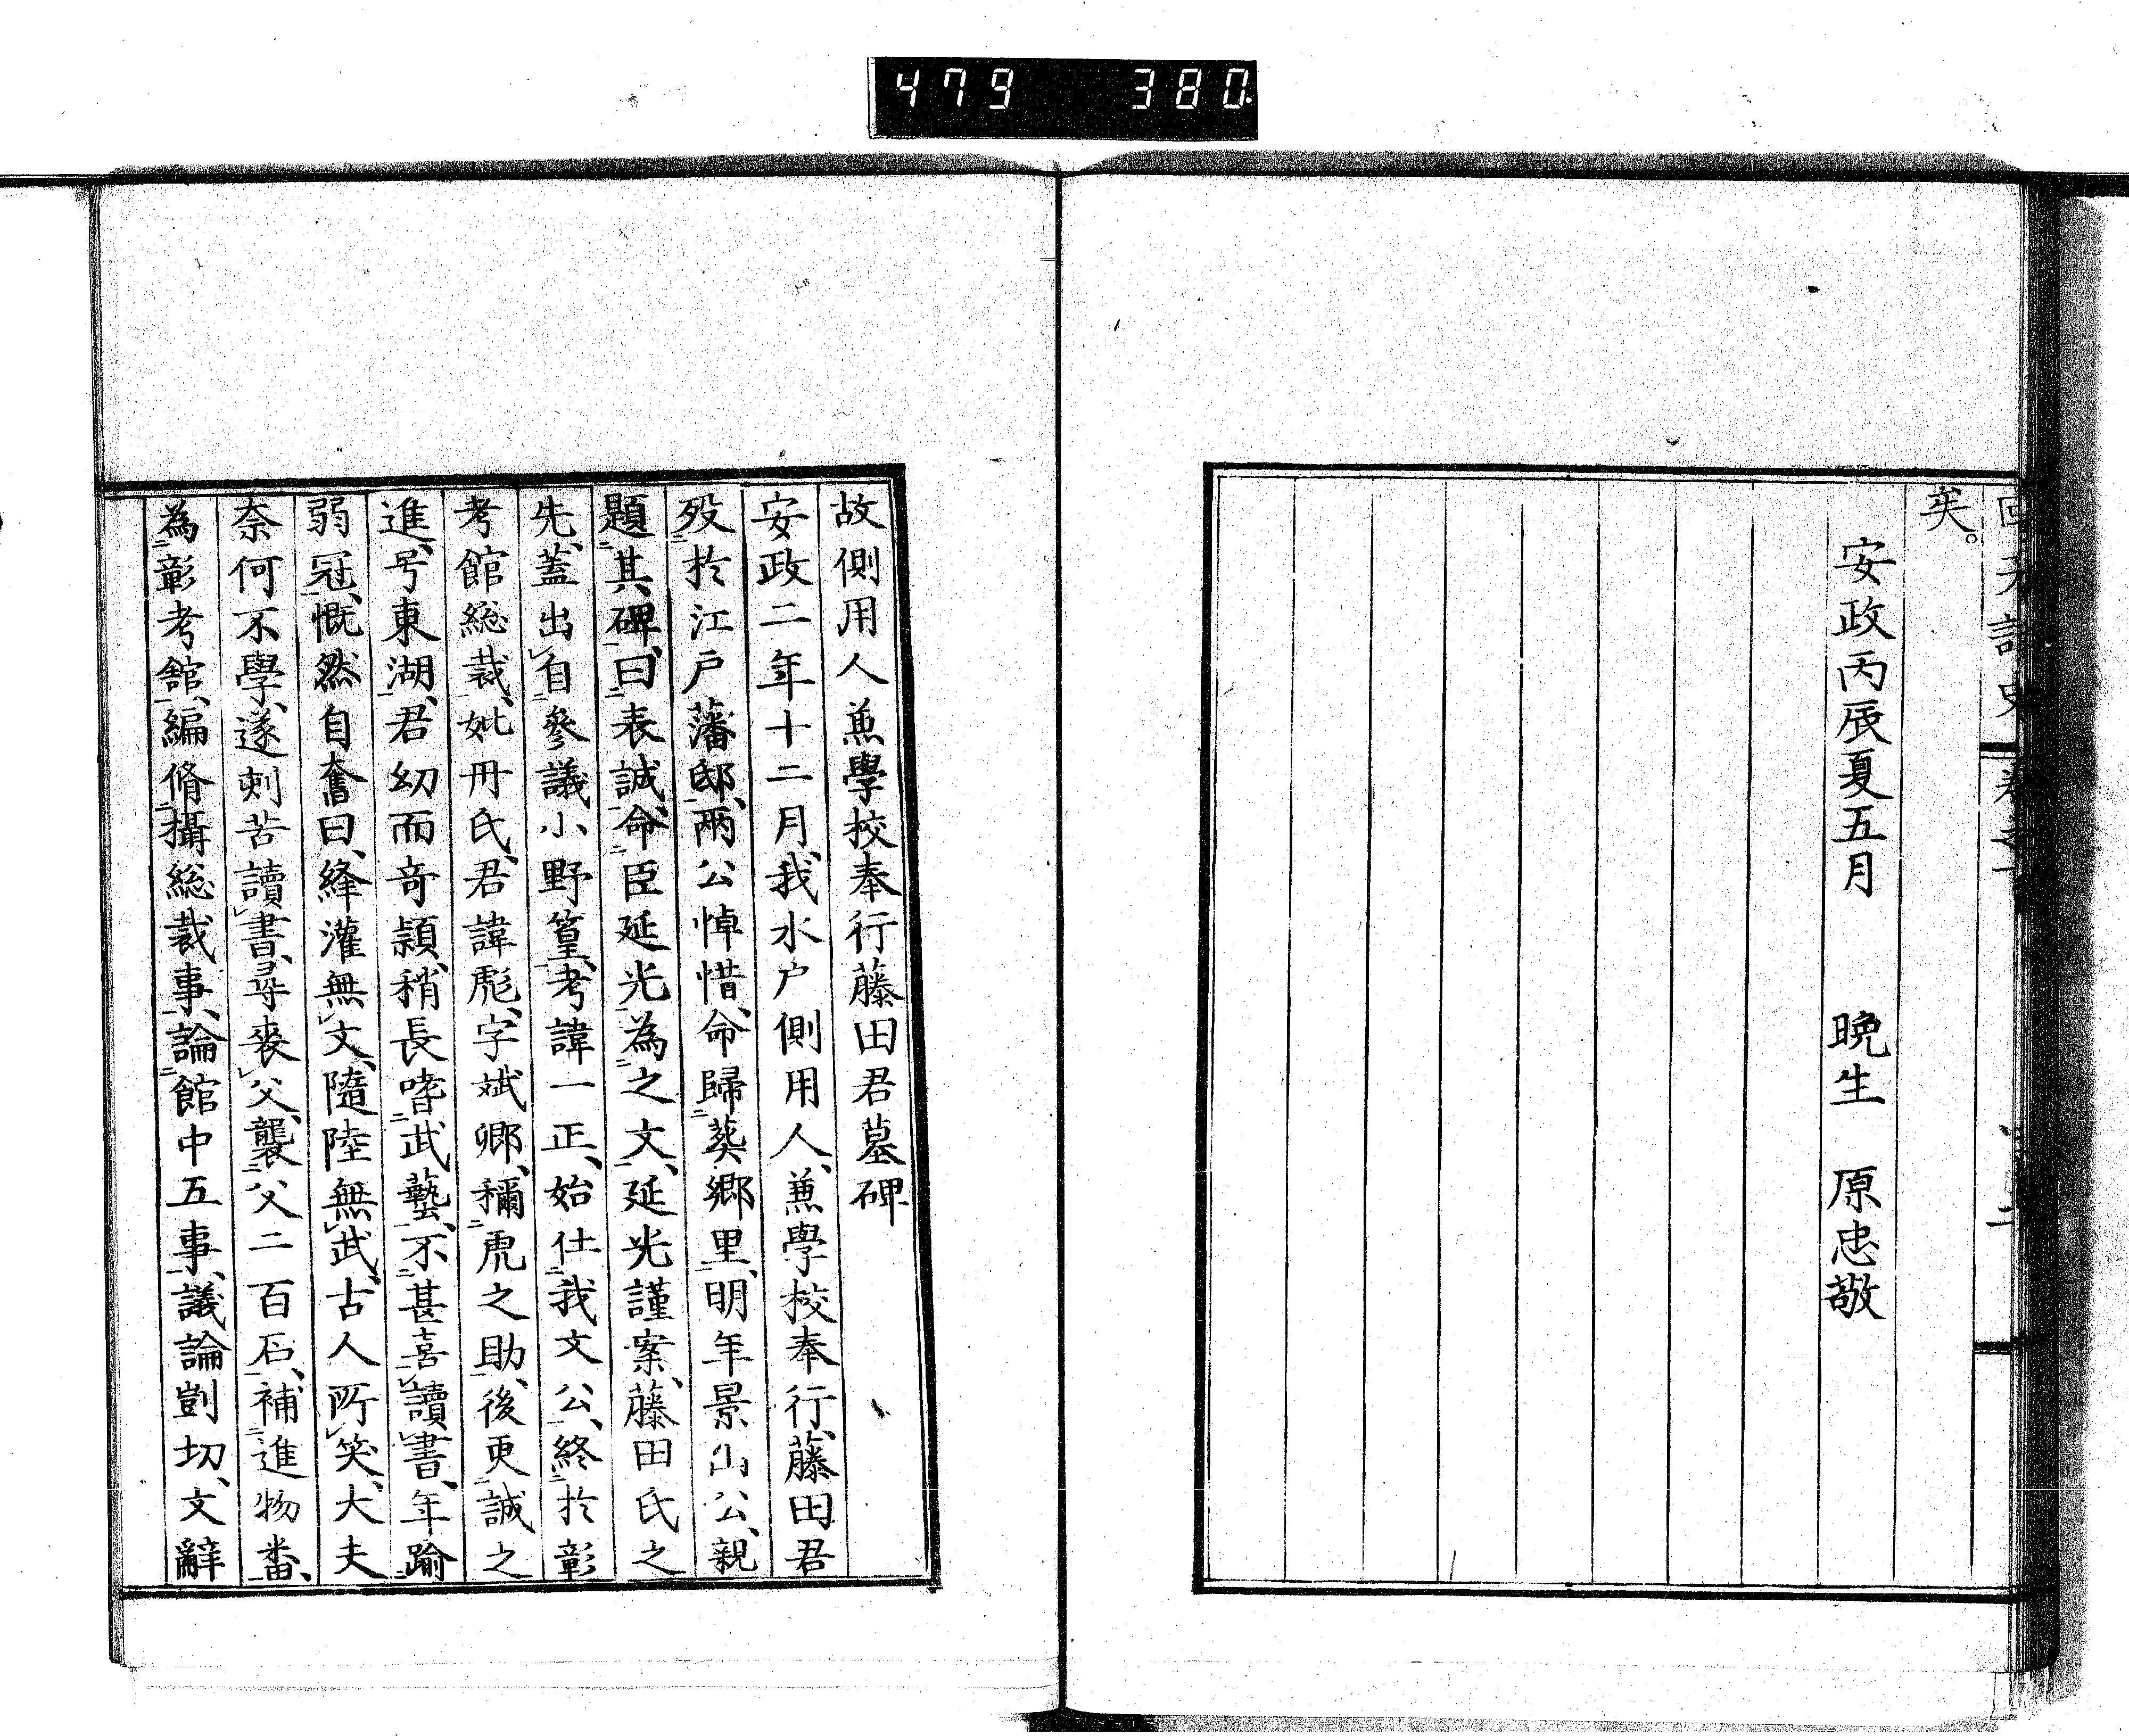 479 380
矣。
安政丙辰夏五月 晩生 原忠敬
故側用人兼學校奉行藤田君墓碑
安政二年十二月、我水户側用人、兼學校奉行、藤田君
歿於江戸藩邸、兩公悼惜、命歸葬郷里、明年景山公、親
題其碑、曰表誠、命臣延光為之文、延光謹案、藤田氏之
先、蓋出自參議小野篁、考諱一正、始仕我文公、終於彰
考館総裁、妣丹氏、君諱彪、字斌卿、稱虎之助、後更誠之
進、号東湖、君幼而奇穎、稍長嗜武藝、不甚喜讀書、年踰
弱冠、慨然自奮曰、絳灌無文、隨陸無武、古人所笑、大夫
奈何不學、遂刺苦讀書、尋喪父、襲父二百石、補進物番、
為彰考館、編脩攝総裁事、論館中五事、議論剴切、文辭